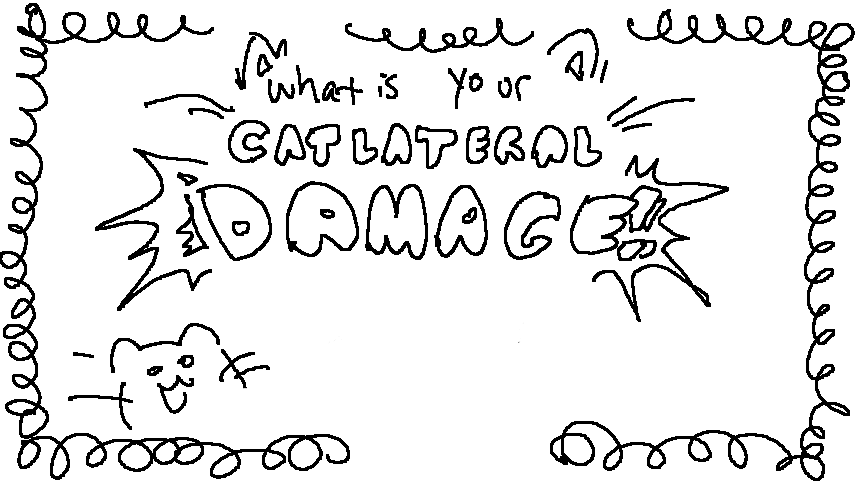 What is your
CATLATERAL
DAMAGE!!